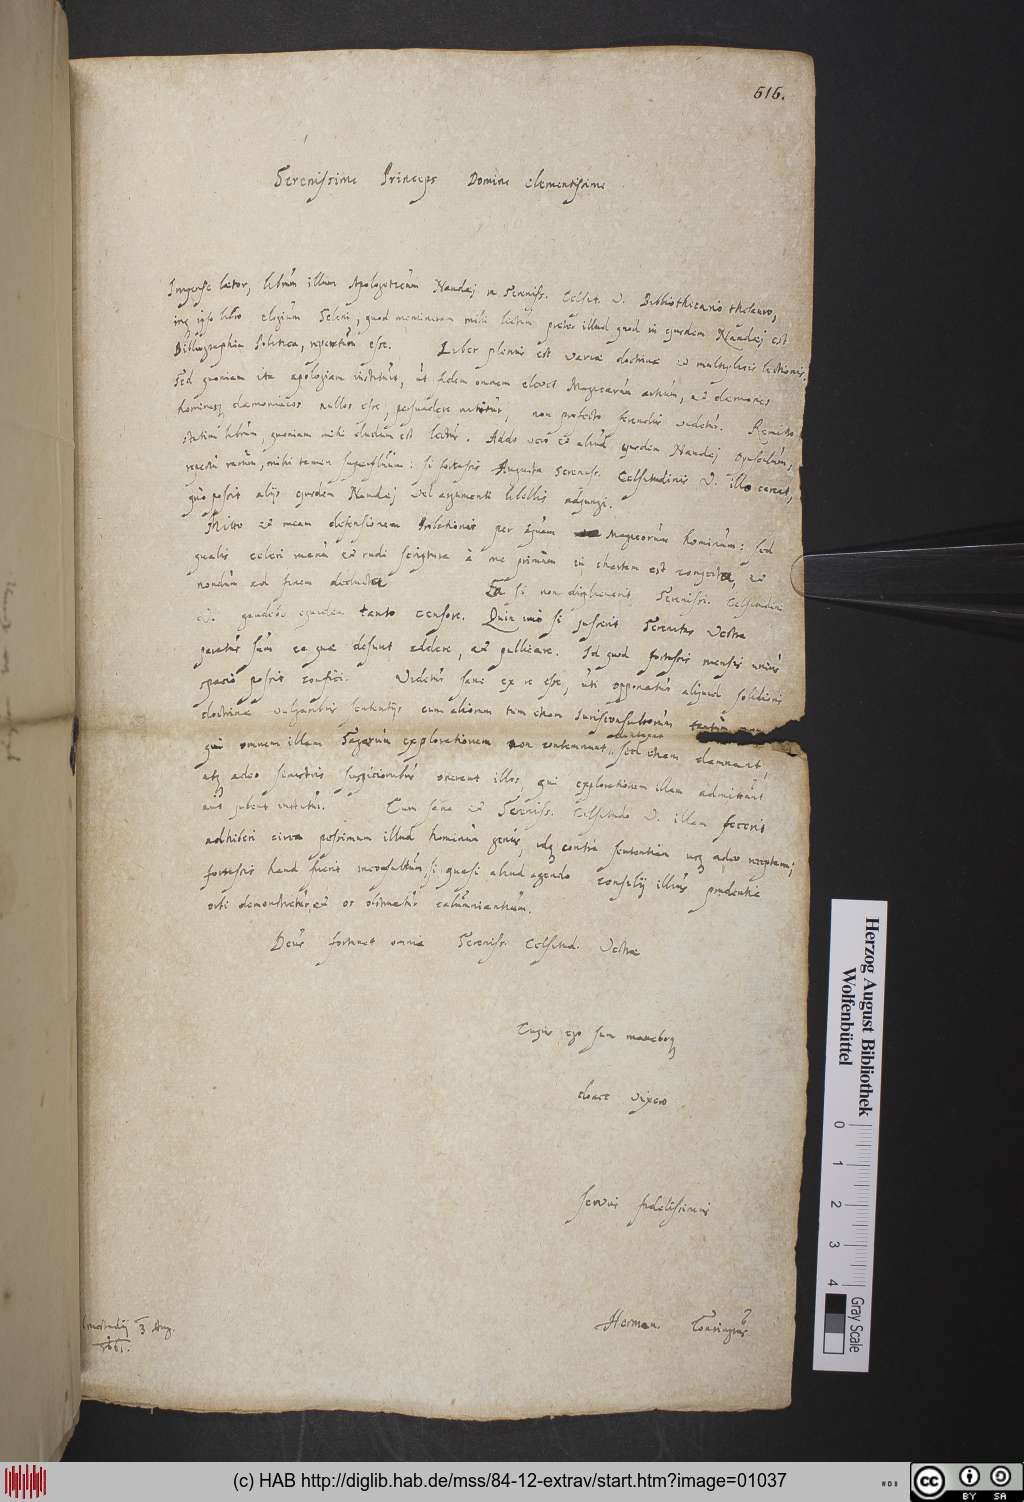 616.
Serenissime Princeps Domine clementissime
Ingense laetor, librum illum Apologeticum Naudaej in Sereniss. Celsit. V. Bibliothecario thesauro,
inq ipso libro elogium Seleni, quod memineram mihi lectum praeter illud quod in ejusdem Naudaej est
Bibliographia Politica, repertum esse. Liber plenus est variae doctrinae et multiplicis lectionis.
Sed quoniam ita apologiam instituit, ut fidem omnem elevet Magicarum artium, et daemones
homines daemoniacos nullos esse, persuadere nitatur, non profecto ferendus videtur. Remitto
statim librum, quoniam mihi dudum est lectus. Addo vero et aliud ejusdem Naudaej opusculum,
rarum, mihi tamen superfluum: si fortassis Augusta Sereniss. Celsitudinis V. illo careat,
quo possit alijs ejusdem Naudaej vel argumenti libellis adjungi.
Mitto et meam defensionem Probationis per aquam Magicorum hominum: sed
qualis celeri manu et rudi scriptura à me primum in chartam est conjecta, et
nondum ad finem deducta. Ea si non displicuerit Sereniss. Celsitudini
V. gaudebo equidem tanto censore. Quin imò si jusserit Serenitas Vestra
paratus sum ea quae desunt addere, et publicare. Id quod fortassis mensis unius
spacio possit confici. Videtur sane ex re esse, uti opponatur aliquid solidioris
doctrinae vulgaribus sententijs cum aliorum tum etiam Jurisconsultorum
qui omnem illam Sagarum explorationem non contemnunt sed etiam damnant,
atq adeo sinistris suspicionibus onerant illos, qui explorationem illam admittunt
aut jubent institui. Cum sane et Sereniss. Celsitudo V. illam fecerit
adhiberi circa pessimum illud hominum genus, idq contra sententiam usq adeo receptam;
fortassis haud fuerit inconsultum, si quasi aliud agendo consilij illius prudentia
orbi demonstretur, et os obstruatur calumniantium.
Deus fortunet omnia Sereniss. Celsitud. Vestrae
Cujus ego sum maneboq
donec vixero
servus fidelissimus
Herman. Conringius
3 Aug.
1661.
Herzog August Bibliothek
Wolfenbüttel
0 1 2 3 4
Gray Scale
(c) HAB http://diglib.hab.de/mss/84-12-extrav/start.htm?image=01037
cc BY SA